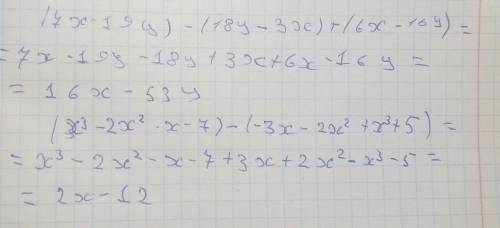 (7x-19y)-(18y-3x)+(6x-16y)=
=7x-19y-18y+3x+6x-16y=
=16x-53y
(x³-2x²-x-7)-(-3x-2x²+x³+5)=
=x³-2x²-x-7+3x+2x²-x³-5=
=2x-12